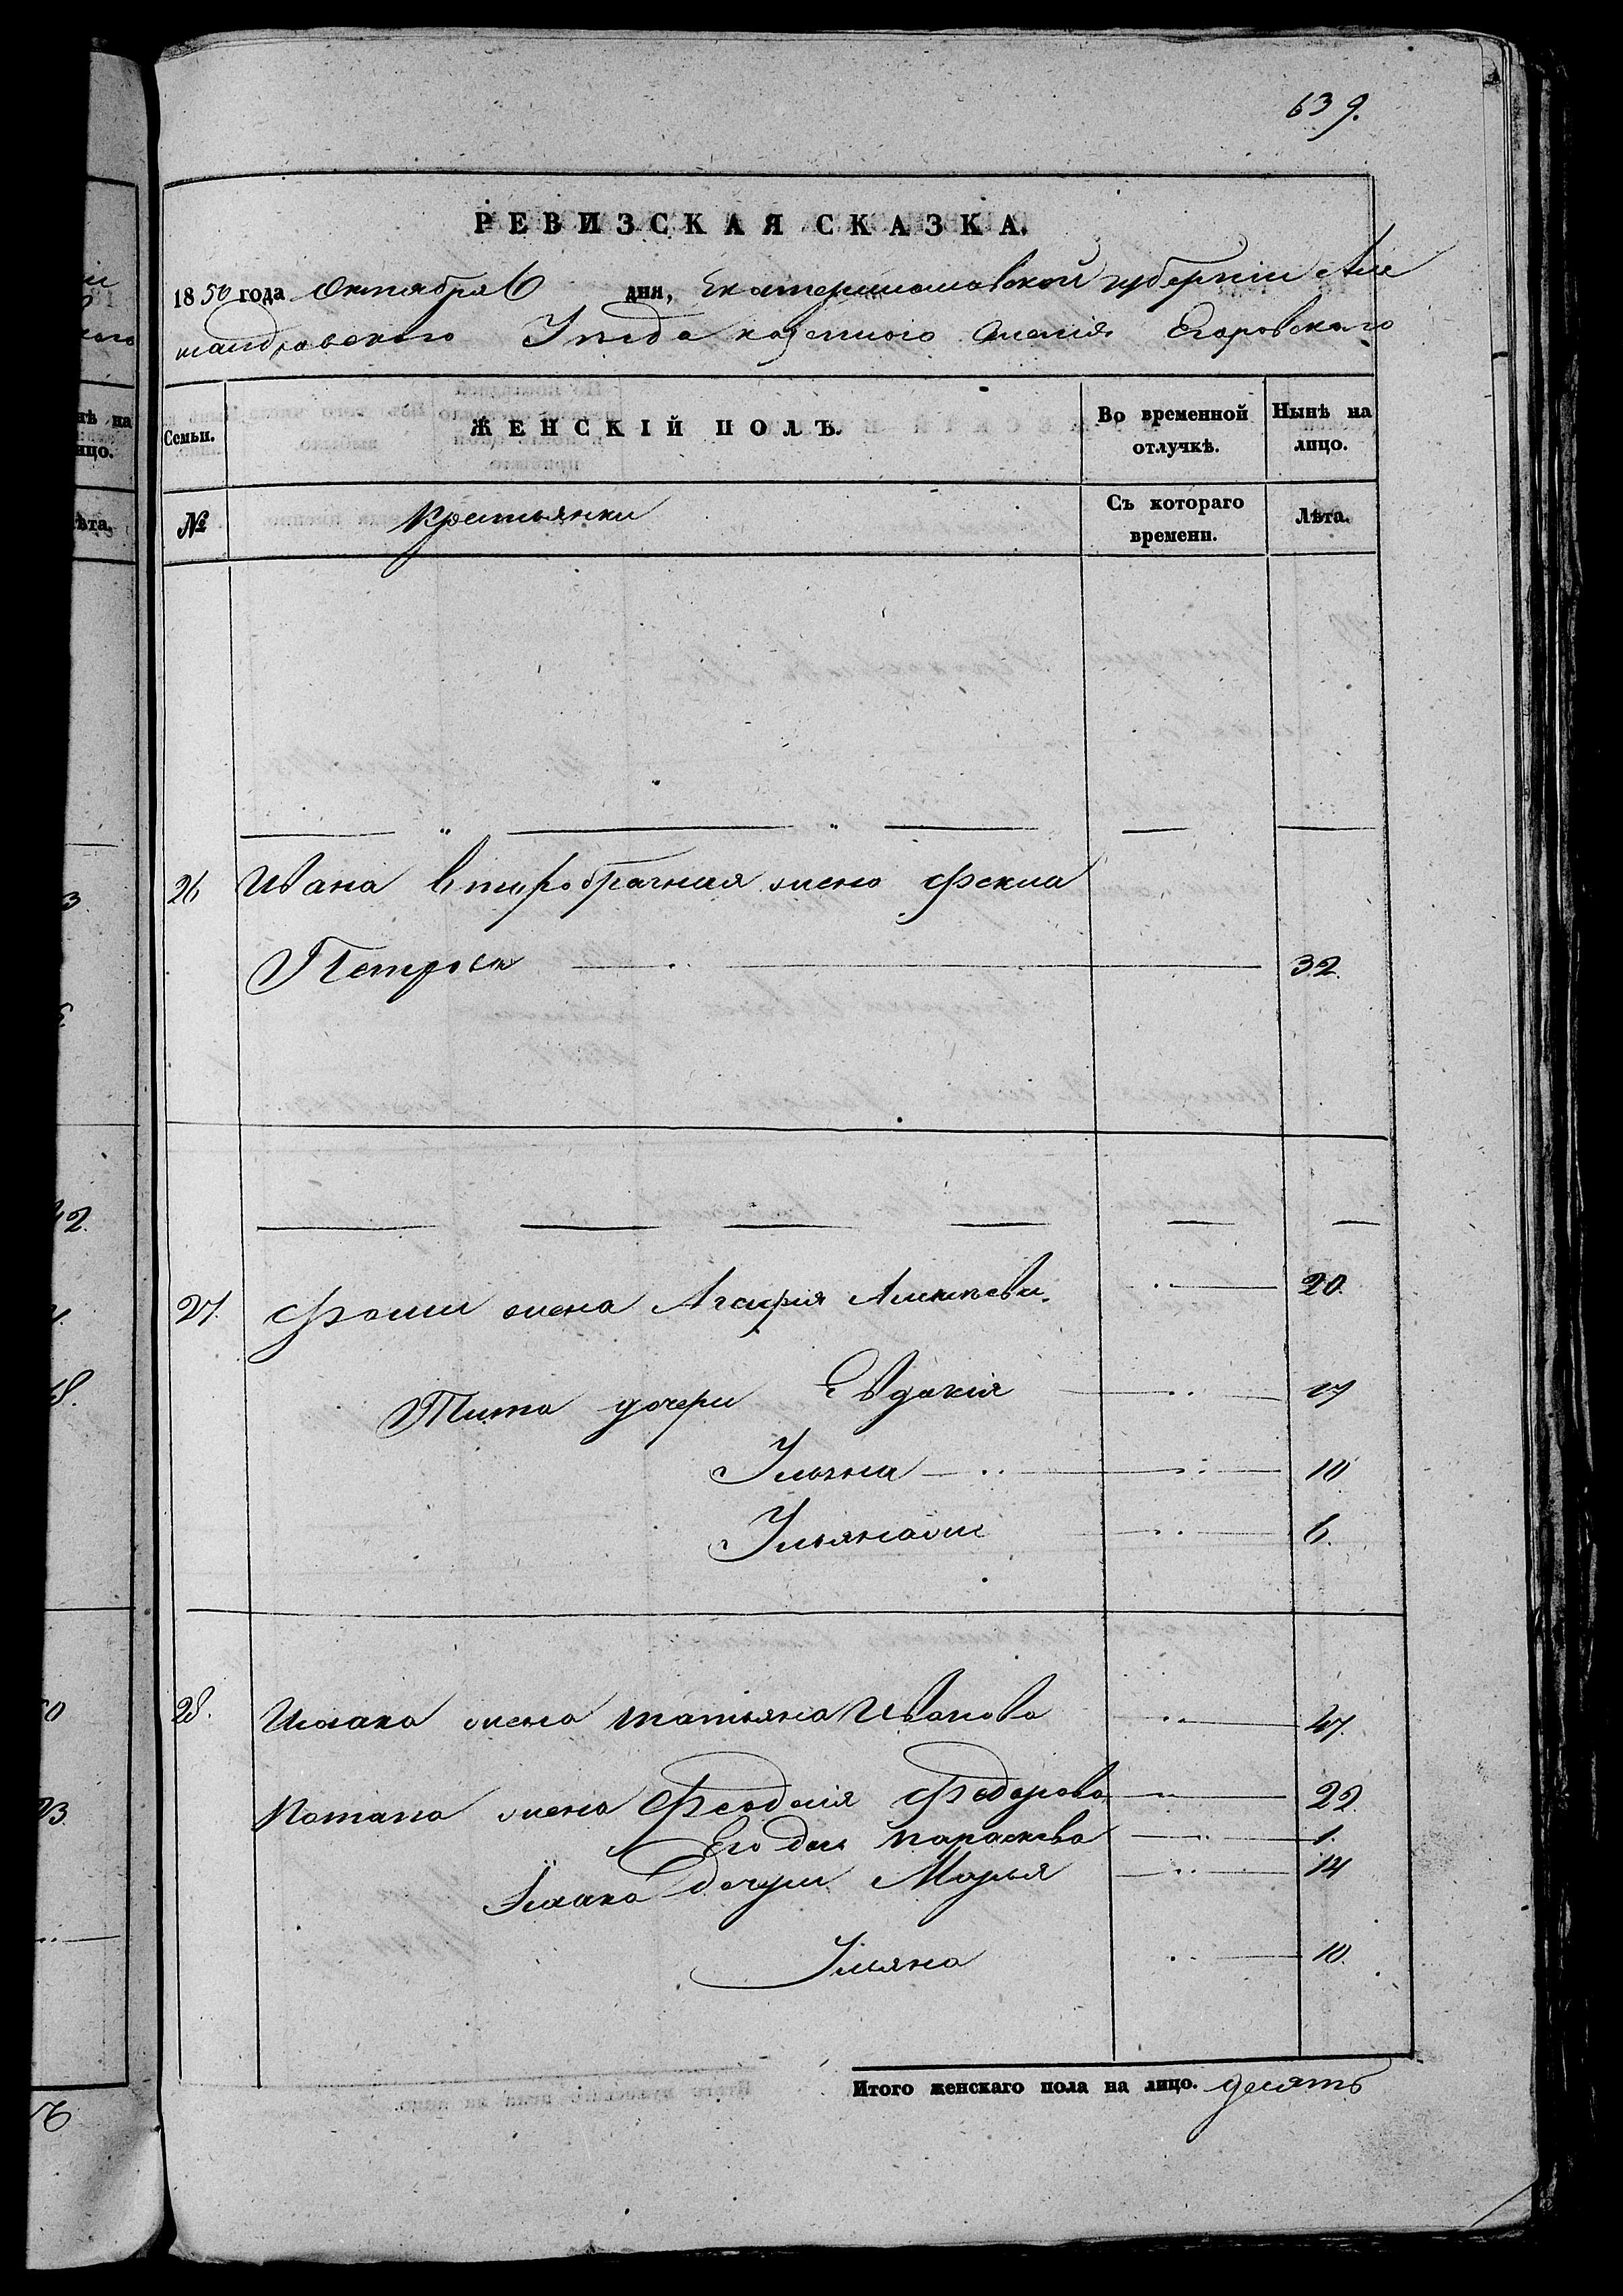 639.
РЕВИЗСКАЯ СКАЗКА.
1850 года Октября 6 дня, Екатеринославской губерніи Але
ксандровского Уезда казенного селенія Егоровского
Семьи. ЖЕНСКІЙ ПОЛЪ. Во временной отлучкѣ. Нынѣ на лицо.
№ Крестьянки Съ котораго времени. Лѣта.
26 Ивана второбрачная жена Фекла
Петрова 32.
27. Фомы жена Агафия Алексѣева 20.
Тита дочери Евдокія 17
Ульяна 10
Ульяна 6.
28. Исаака жена Татьяна Иванова 47.
Потапа жена Феодосия Федорова 22.
Его дочь Параскева 1.
Исаака дочери Марья 14
Ульяна 10.
Итого женскаго пола на лицо. десять